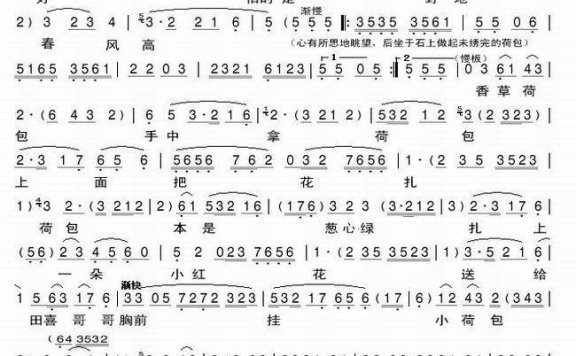 渐慢
2) 3 2 3 4 | 3·2 2 1 6 | 5 (5 5 5 ‖: 3535 3561 | 5 5 0 6 |
春 风 高 (心有所思地眺望，后坐于石上做起未绣完的荷包)
5165 3561 | 2 2 0 3 | 2321 6123 | 5 5 0 5 :‖ 5 5 5 | 0 3 6 1 4 3 |
1 2 (慢板)
香 草 荷
2·(6 4 3 2) | 6 5 3·2 1 6 | 2·(3 2 1 2) | 5 3 2 1 2 | 3(2 323) |
包 手 中 拿 荷 包
2·3 1 7 6 5 6 | 5656 7 6 2 0 3 2 7656 | 1·(2 3 5 3523 |
上 面 把 花 扎
1) 3 2·(3 212 | 2) 6 1 532 1 6 | (176) 3 2 3 (3·212 | 3) 2·3 1 7 |
荷 包 本 是 葱 心 绿 扎 上
(5 6) 2 3 4 5 6 0 | 5 2 0 2 3 7656 | 1·(2 3 5 3523 | 1) 3·5 2 1 6 |
一 朵 小 红 花 送 给
渐快
1 5 6 3 1 7 6 | 3 3 0 5 7272 323 | 532 1 7 6 5 6 (1 7 | 6) 1 2 4 3 2 (343 |
田喜 哥 哥 胸前 挂 小 荷 包
(6 4 3532